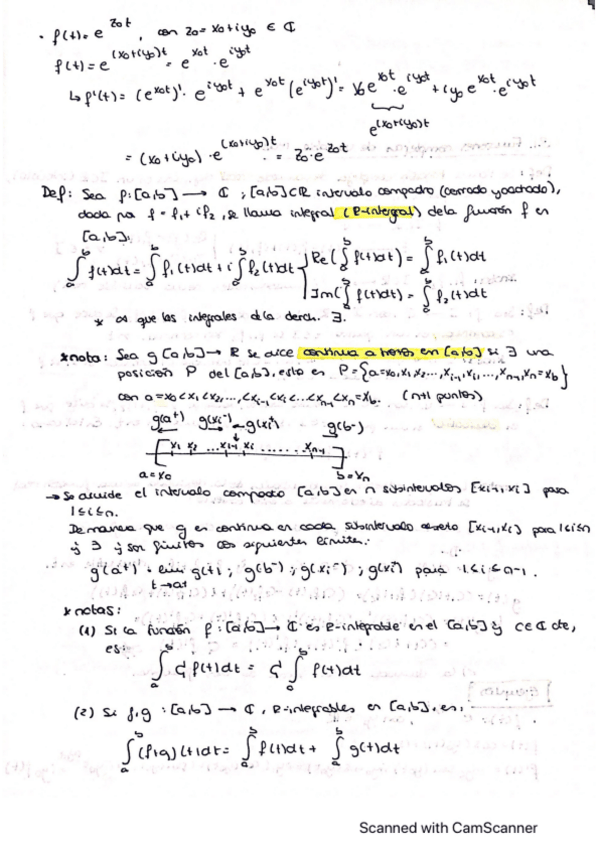 · f(t) = e^{z₀t}, con z₀ = x₀+iy₀ ∈ ℂ
f(t) = e^{(x₀+iy₀)t} = e^{x₀t} · e^{iy₀t}
↳ f'(t) = (e^{x₀t})' · e^{iy₀t} + e^{x₀t} (e^{iy₀t})' = x₀e^{x₀t} · e^{iy₀t} + iy₀ e^{x₀t} · e^{iy₀t}
e^{(x₀+iy₀)t}
= (x₀+iy₀) · e^{(x₀+iy₀)t} = z₀ · e^{z₀t}
Def: Sea f: [a,b] → ℂ ; [a,b] ⊂ ℝ intervalo compacto (cerrado y acotado),
dada por f = f₁ + if₂, se llama integral (R-integral) de la función f en
[a,b].
∫ₐᵇ f(t)dt = ∫ₐᵇ f₁(t)dt + i ∫ₐᵇ f₂(t)dt { Re(∫ₐᵇ f(t)dt) = ∫ₐᵇ f₁(t)dt
Im(∫ₐᵇ f(t)dt) = ∫ₐᵇ f₂(t)dt
* que las integrales d la derch. ∃.
*nota: Sea g [a,b] → ℝ se dice continua a trozos en [a,b] si ∃ una
posición P del [a,b], esto es P = {a=x₀,x₁,x₂...,xᵢ₋₁,xᵢ,...,xₙ₋₁,xₙ=x_b}
con a=x₀<x₁<x₂,...,<xᵢ₋₁<xᵢ<...<xₙ₋₁<xₙ=x_b. (n+1 puntos)
g(a⁺) g(xᵢ⁻) g(xᵢ⁺) g(b⁻)
x₁ x₂ ... xᵢ₋₁ xᵢ ... xₙ₋₁
a=x₀ b=xₙ
→ Se divide el intervalo compacto [a,b] en n subintervalos [xᵢ₋₁,xᵢ] para
1≤i≤n.
De manera que g es continua en cada subintervalo abierto [xᵢ₋₁,xᵢ] para 1≤i≤n
y ∃ y son finitos los siguientes límites:
g(a⁺) = lim g(t) ; g(b⁻) ; g(xᵢ⁻) ; g(xᵢ⁺) para 1≤i≤n-1.
t→a⁺
*notas:
(1) Si la función f: [a,b] → ℂ es R-integrable en el [a,b] y c∈ℂ cte,
es:
∫ₐᵇ c f(t)dt = c ∫ₐᵇ f(t)dt
(2) Si f,g : [a,b] → ℂ, R-integrables en [a,b], es:
∫ₐᵇ (f+g)(t)dt = ∫ₐᵇ f(t)dt + ∫ₐᵇ g(t)dt
Scanned with CamScanner